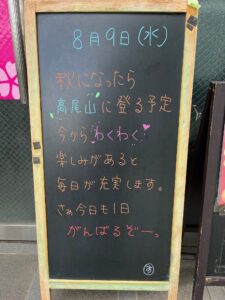 8月9日(水)
秋になったら
高尾山に登る予定
今からわくわく
楽しみがあると
毎日が充実します。
さぁ今日も1日
がんばるぞー。